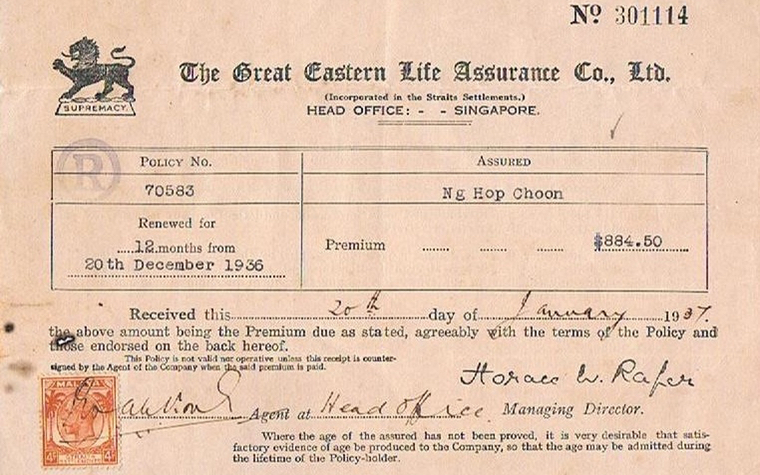 Nº 301114
The Great Eastern Life Assurance Co., Ltd.
SUPREMACY.
(Incorporated in the Straits Settlements.)
HEAD OFFICE: - - SINGAPORE.
R
POLICY No.
ASSURED
70583
Ng Hop Choon
Renewed for
12 months from
20th December 1936
Premium ...... ...... ...... $884.50
Received this 20th day of January 1937.
the above amount being the Premium due as stated, agreeably with the terms of the Policy and
those endorsed on the back hereof.
This Policy is not valid nor operative unless this receipt is counter-
signed by the Agent of the Company when the said premium is paid.
Horace W. Raper
MALAYA
4c 4c
Agent at Head Office. Managing Director.
Where the age of the assured has not been proved, it is very desirable that satis-
factory evidence of age be produced to the Company, so that the age may be admitted during
the lifetime of the Policy-holder.